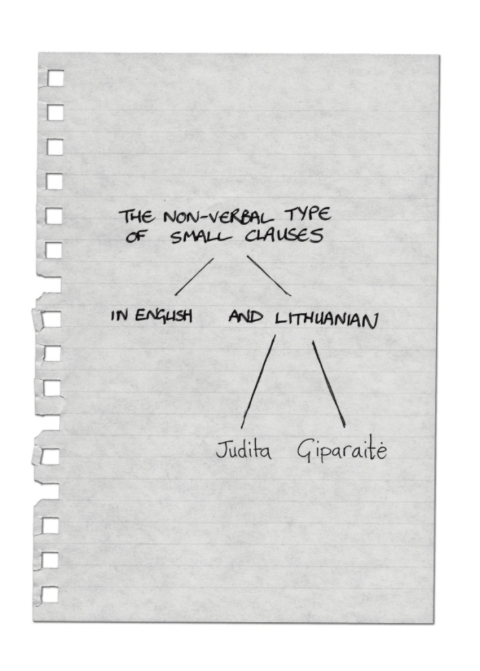 THE NON-VERBAL TYPE
OF SMALL CLAUSES
IN ENGLISH AND LITHUANIAN
Judita Giparaitė